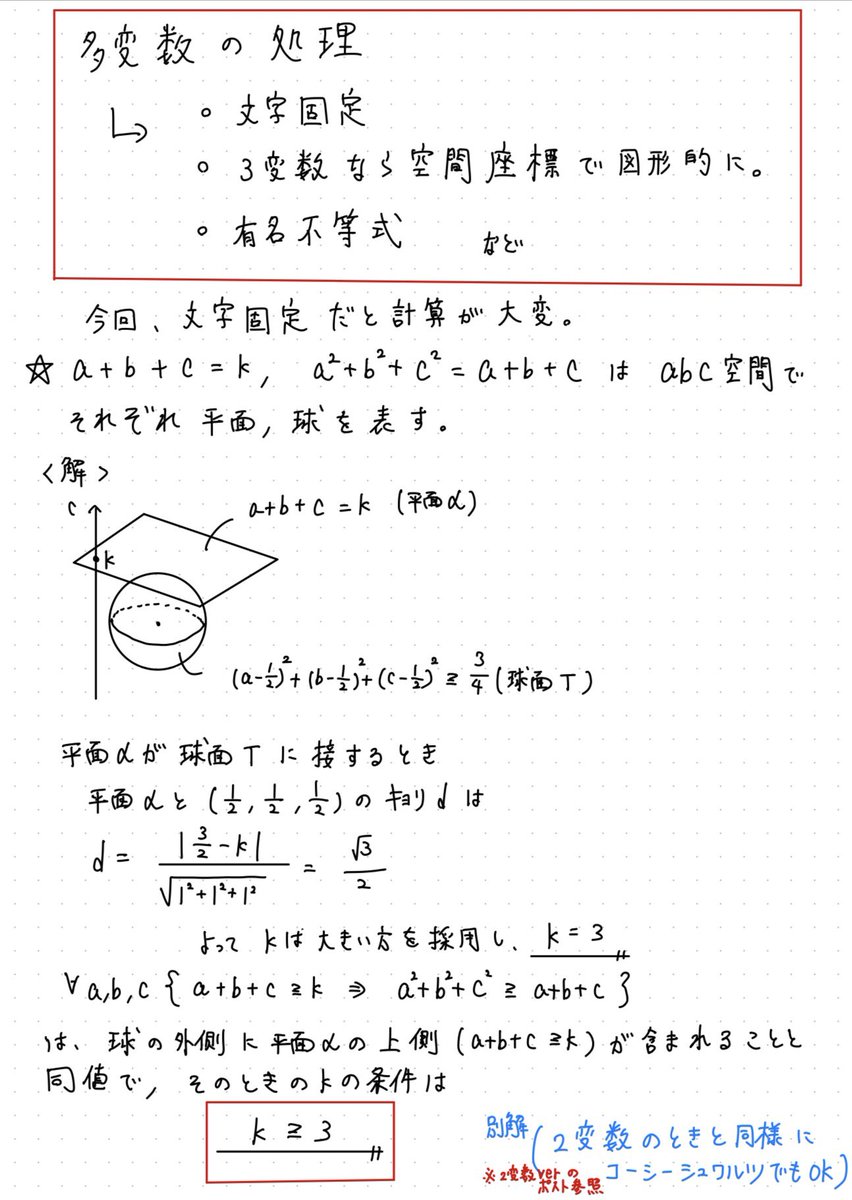 多変数の処理
↳ ○ 文字固定
○ 3変数なら空間座標で図形的に。
○ 有名不等式 など
今回、文字固定だと計算が大変。
☆ a+b+c=k, a²+b²+c²=a+b+c は abc空間で
それぞれ平面,球を表す。
<解>
c
a+b+c=k (平面α)
k
(a-1/2)²+(b-1/2)²+(c-1/2)²≧3/4(球面T)
平面αが球面Tに接するとき
平面αと(1/2,1/2,1/2)のキョリdは
d=|3/2-k|/√1²+1²+1²=√3/2
よってkは大きい方を採用し、k=3
∀a,b,c{a+b+c≧k⇒a²+b²+c²≧a+b+c}
は、球の外側に平面αの上側(a+b+c≧k)が含まれることと
同値で,そのときのkの条件は
k≧3
別解(2変数のときと同様に
コーシーシュワルツでもOK)
※2変数verの
ポスト参照